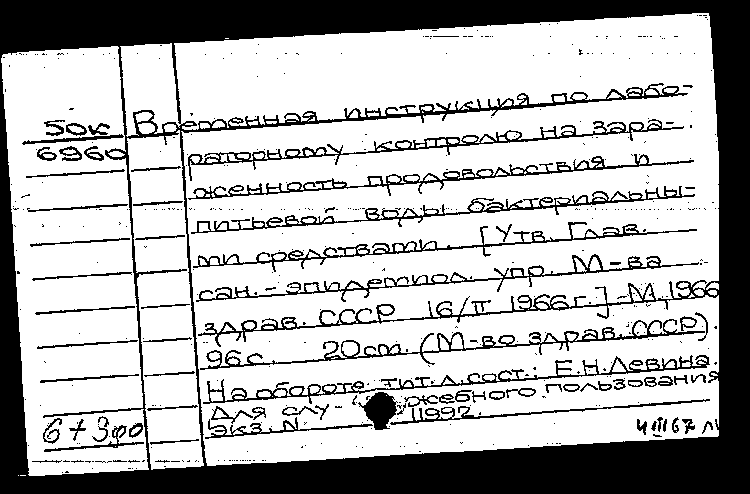 50к Временная инструкция по лабо-
6960 раторному контролю на зара-
женность продовольствия и
питьевой воды бактериальны-
ми средствами. [Утв. Глав.
сан.-эпидемиол. упр. М-ва
здрав. СССР 16/II 1966г.]-М,1966
96с. 20cm. (М-во здрав. СССР).
На обороте тит. л. сост.: Е.Н.Левина.
Для слу- жебного пользования
6+3фо Экз. N 11992.
4 III 67